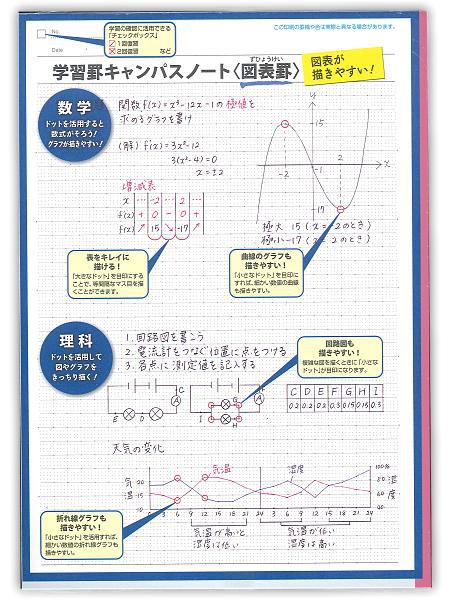 この印刷の罫線や色は実際と異なる場合があります。
No.
Date
学習の確認に活用できる
「チェックボックス」
1回復習
2回復習 など
学習罫キャンパスノート〈図表罫〉
ずひょうけい
図表が
描きやすい!
数学
ドットを活用すると
数式がそろう!
グラフが描きやすい!
関数f(x)=x³-12x-1の極値を
求めるグラフを書け
(解) f'(x)=3x²-12
3(x²-4)=0
x=±2
増減表
x … -2 … 2 …
f'(x) + 0 - 0 +
f(x) ↗ 15 ↘ -17 ↗
y
15
-2
2
x
-17
極大 15 (x=-2のとき)
極小-17 (x=2のとき)
表をキレイに
描ける!
「大きなドット」を目印にする
ことで、等間隔なマス目を描
くことができます。
曲線のグラフも
描きやすい!
「小さなドット」を目印に
すれば、細かい数値の曲線
も描きやすい。
理科
ドットを活用して
図やグラフを
きっちり描く!
1.回路図を書こう
2.電流計をつなぐ位置に点をつける
3.各点に測定値を記入する
回路図も
描きやすい!
複雑な図を描くときに「小さな
ドット」が目印になります。
C D E F G H I
0.2 0.2 0.2 0.3 0.15 0.15 0.3
C
A
E D
C
A
F G
I H
天気の変化
気温
湿度
気温
20
15
10
100%
80
60
40
湿度
0 3 6 9 12 15 18 21 24 3 6 9 12 15 18 21 24
気温が高いと
湿度は低い
気温が低い
湿度は高い
折れ線グラフも
描きやすい!
「小さなドット」を活用すれば、
細かい数値の折れ線グラフも
描きやすい。